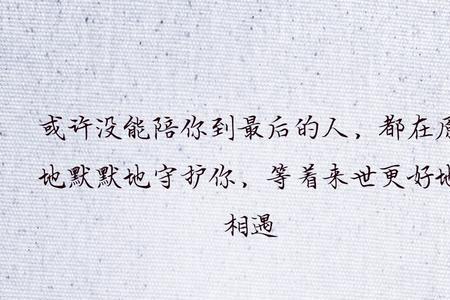 或许没能陪你到最后的人，都在原
地默默地守护你，等着来世更好地
相遇